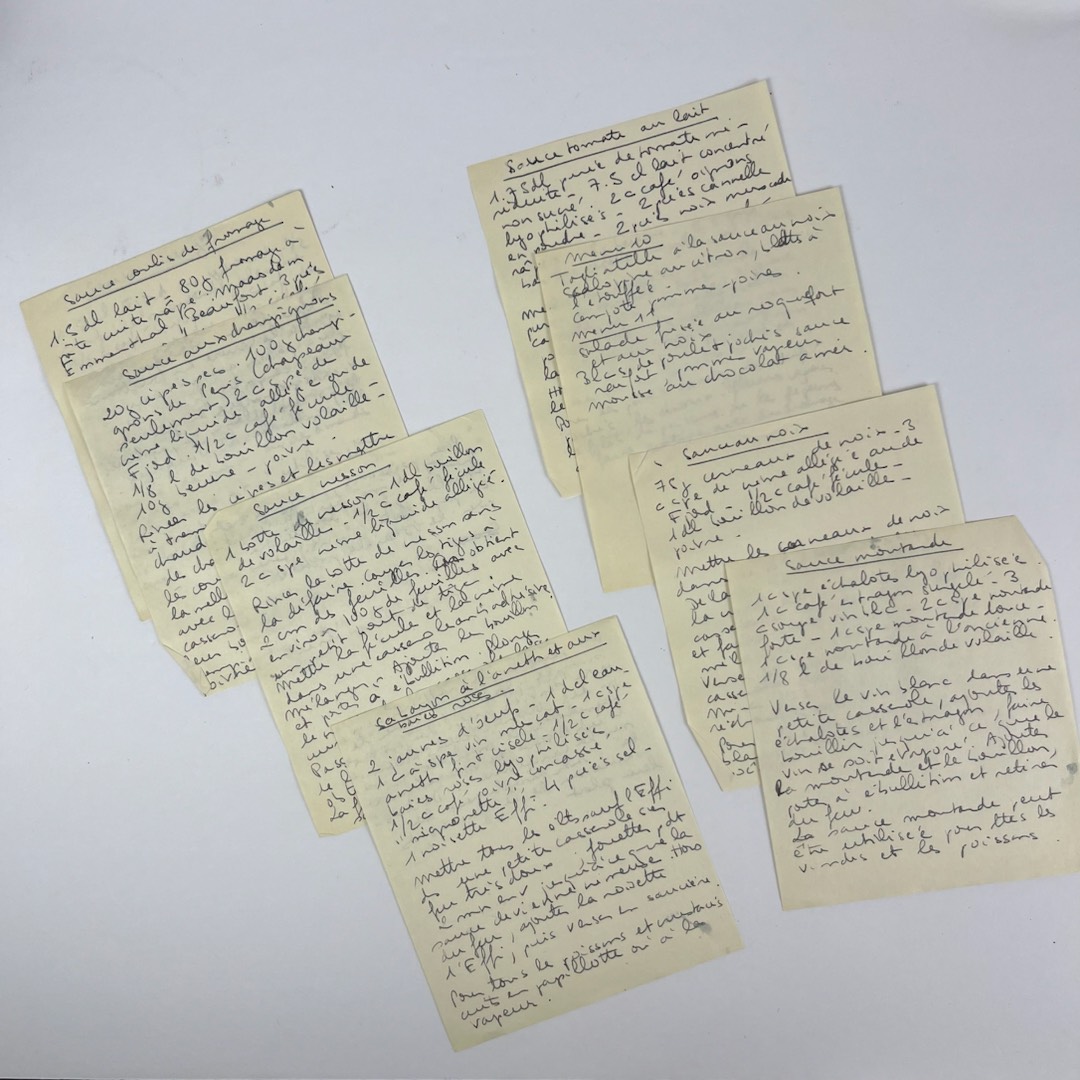 Sauce coulis de fromage
1.5 dl lait - 80 g fromage à
pâte cuite râpé, Maasdam
Emmenthal, Beaufort. 3 p
Sauce aux champignons
20 g cèpes secs. 100 g champi-
gnons de Paris (chapeaux
seulement) 2 c à spe de
crème liquide allégée
Fjord. 1/2 c café fécule
1/8 l de bouillon volaille -
10 g beurre - poivre.
Rincer les cèpes et les mettre
à trem
chaud
des cha
les cou
la mell
avec l
casserol
Sauce cresson
1 botte de cresson - 1 dl bouillon
de volaille - 1/2 c café fécule
2 c spe crème liquide allégée.
Rincer la botte de cresson sans
la défaire, couper les tiges à
2 cm des feuilles. On obtient
environ 100 g de feuilles avec
un petit bout de tige.
Mettre la fécule et la crème
dans une casserole antiadhésive,
mélanger. Ajouter le bouillon
et porter à ébullition. Plonger
Pass
Sabayon à l'aneth et aux
baies roses
2 jaunes d'oeuf - 1 dcl eau -
1 c à spe vin muscat - 1 c spe
aneth frais ciselé - 1/2 c café
baies roses lyophilisée,
1/2 c café poivre concassé,
mignonette. 4 pincées sel -
1 noisette Effi.
Mettre tous les élts sauf l'Effi
ds une petite casserole sur
feu très doux. fouetter pdt
6 mn env jusqu'à ce que la
sauce devienne mousseuse. Hors
du feu, ajouter la noisette
d'Effi, puis verser en saucière.
Pour tous les poissons et crustacés
cuits en papillotte ou à la
vapeur.
Sauce tomate au lait
1.75 dl purée de tomate mi-
réduite - 7.5 cl lait concentré
non sucré. 2 c café oignons
lyophilisés - 2 pcées cannelle
en poudre - 2 pcées noix muscade
râp
Menu 10
Tagliatelle à la sauce au noix
Escalopine au citron, blettes à
l'étouffée
compote pommes-poires.
Menu 11
Salade frisée au roquefort
et aux noix
Blancs de poulet pochés sauce
raifort, pomme vapeur
mousse au chocolat amer.
Sauce au noix
75 g cerneaux de noix - 3
c spe de crème allégée aude
Fjord - 1/2 c café fécule -
1 dl bouillon de volaille -
poivre -
Mettre les cerneaux de noix
dans
de la
la c
et fa
verse
casse
Pou
bla
Sauce moutarde
1 c spe échalotes lyophilisée.
1 c café estragon surgelé - 3
c soupe vin blc - 2 c spe moutarde
forte - 1 c spe moutarde douce -
1 c spe moutarde à l'ancienne.
1/8 l de bouillon de volaille.
Verser le vin blanc dans une
petite casserole, ajouter les
échalotes et l'estragon, faire
bouillir jusqu'à ce que le
vin se soit évaporé. Ajouter
la moutarde et le bouillon,
porter à ébullition et retirer
du feu.
La sauce moutarde peut
être utilisée pour ttes les
viandes et les poissons.